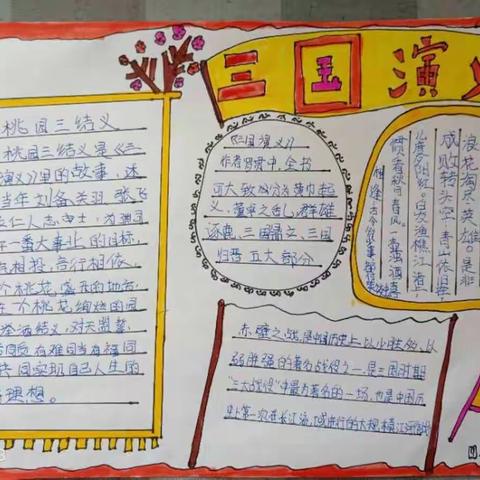 三国演义
桃园三结义
桃园三结义是《三
演义》里的故事,述
当年刘备、关羽、张飞
仁人志士,为
一番大事业的目标,
相投,言行相依,
个桃花盛开的地方,
个桃花绚烂的园
结义,对天盟誓,
有难同当有福同
共同实现自己人生的
理想。
《三国演义》
作者罗贯中,全书
可大致分为黄巾起
义、董卓之乱、群雄
逐鹿、三国鼎立、三国
归晋五大部分
浪花淘尽英雄。是非
成败转头空。青山依旧在
几度夕阳红。白发渔樵江渚
惯看秋月春风。一壶浊酒喜
相逢。古今多少事
赤壁之战,是中国历史上以少胜多、以
弱胜强的著名战役之一,是三国时期
"三大战役"中最为著名的一场,也是中国历
史上第一次在长江流域进行的大规模江河作战